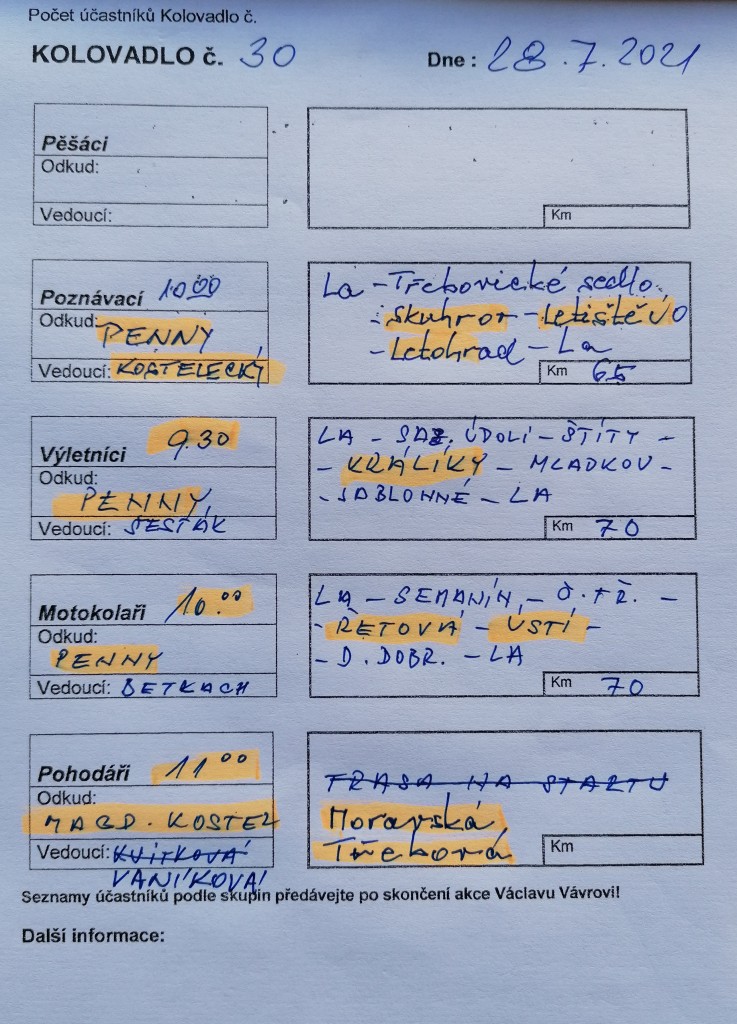 Počet účastníků Kolovadlo č.
KOLOVADLO č. 30 Dne : 28.7.2021
Pěšáci
Odkud:
Vedoucí:
Km
Poznávací 10 00
Odkud: PENNY
Vedoucí: KOSTELECKÝ
La - Třebovické sedlo
- Skuhrov - Letiště ÚO
- Letohrad - La
Km 65
Výletníci 9.30
Odkud:
PENNY
Vedoucí: ŠESTÁK
LA - SAZ. ÚDOLÍ - ŠTÍTY -
- KRÁLÍKY - MLADKOV -
- JABLONNÉ - LA
Km 70
Motokolaři 10.00
Odkud:
PENNY
Vedoucí: BETKACH
LA - SEMANÍN - Č. TŘ. -
- ŘETOVÁ - ÚSTÍ -
- D. DOBR. - LA
Km 70
Pohodáři 11 00
Odkud:
MAGD. KOSTEL
Vedoucí: KVITKOVÁ
VANÍKOVÁ
TRASA NA STARTU
Moravská
Třebová
Km
Seznamy účastníků podle skupin předávejte po skončení akce Václavu Vávrovi!
Další informace: